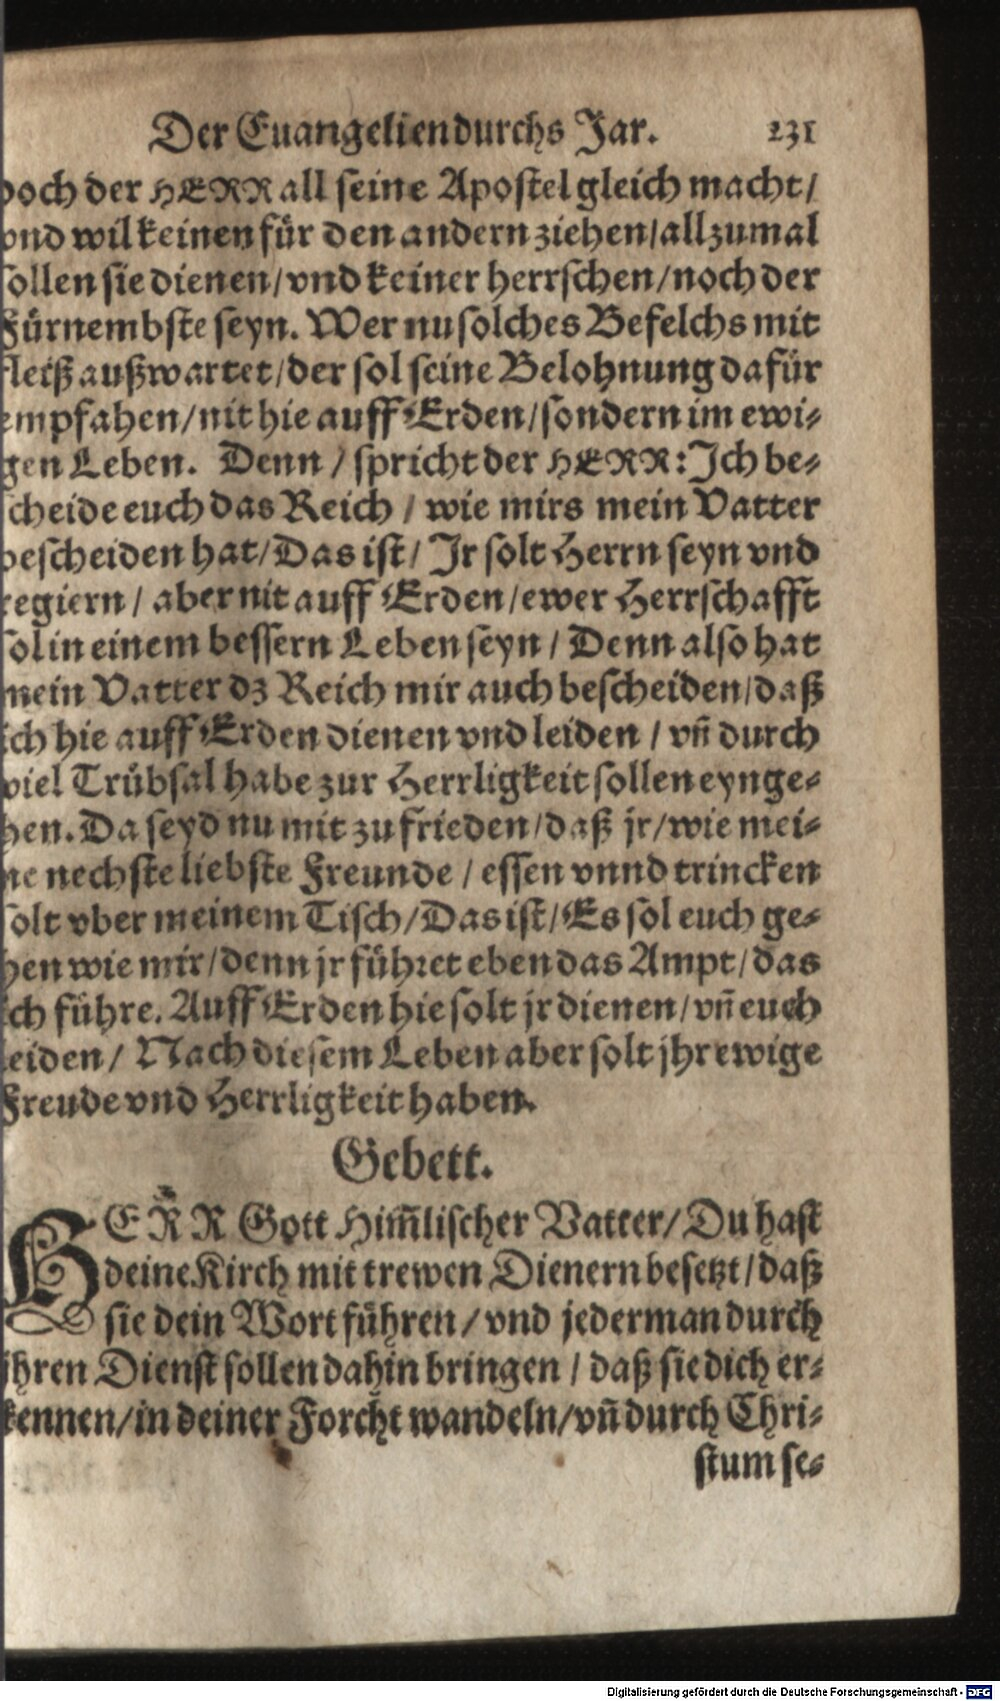 Der Euangelien durchs Jar. 231
doch der HERR all seine Apostel gleich macht/
vnd wil keinen für den andern ziehen/allzumal
sollen sie dienen/vnd keiner herrschen/noch der
Fürnembste seyn. Wer nu solches Befelchs mit
fleiß außwartet/der sol seine Belohnung dafür
empfahen/nit hie auff Erden/sondern im ewi-
gen Leben. Denn/spricht der HERR: Ich be-
scheide euch das Reich/wie mirs mein Vatter
bescheiden hat/Das ist/Jr solt Herrn seyn vnd
regiern/aber nit auff Erden/ewer Herrschafft
sol in einem bessern Leben seyn/Denn also hat
mein Vatter dz Reich mir auch bescheiden/daß
ich hie auff Erden dienen vnd leiden/vñ durch
viel Trübsal habe zur Herrligkeit sollen eynge-
hen. Da seyd nu mit zu frieden/daß jr/wie mei-
ne nechste liebste Freunde/essen vnnd trincken
solt vber meinem Tisch/Das ist/Es sol euch ge-
hen wie mir/denn jr führet eben das Ampt/das
ich führe. Auff Erden hie solt jr dienen/vñ euch
leiden/Nach diesem Leben aber solt jhr ewige
Freude vnd Herrligkeit haben.
Gebett.
HERR Gott Him̃lischer Vatter/Du hast
deine Kirch mit trewen Dienern besetzt/daß
sie dein Wort führen/vnd jederman durch
ihren Dienst sollen dahin bringen/daß sie dich er-
kennen/in deiner Forcht wandeln/vñ durch Chri-
stum se-
Digitalisierung gefördert durch die Deutsche Forschungsgemeinschaft - DFG